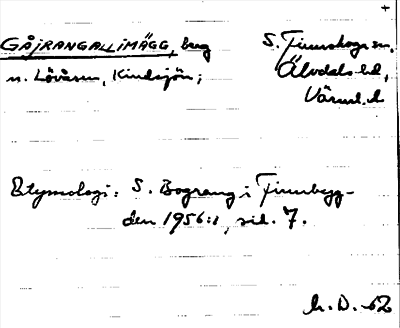 GÅJRANGALLIMÄGG, berg
n. Lövåsen, Kindsjön;
S. Finnskoga sn,
Älvdals hd,
Värml. l.
Etymologi: S. Bograng i Finnbyg-
den 1956:1, sid. 7.
h. D. -62